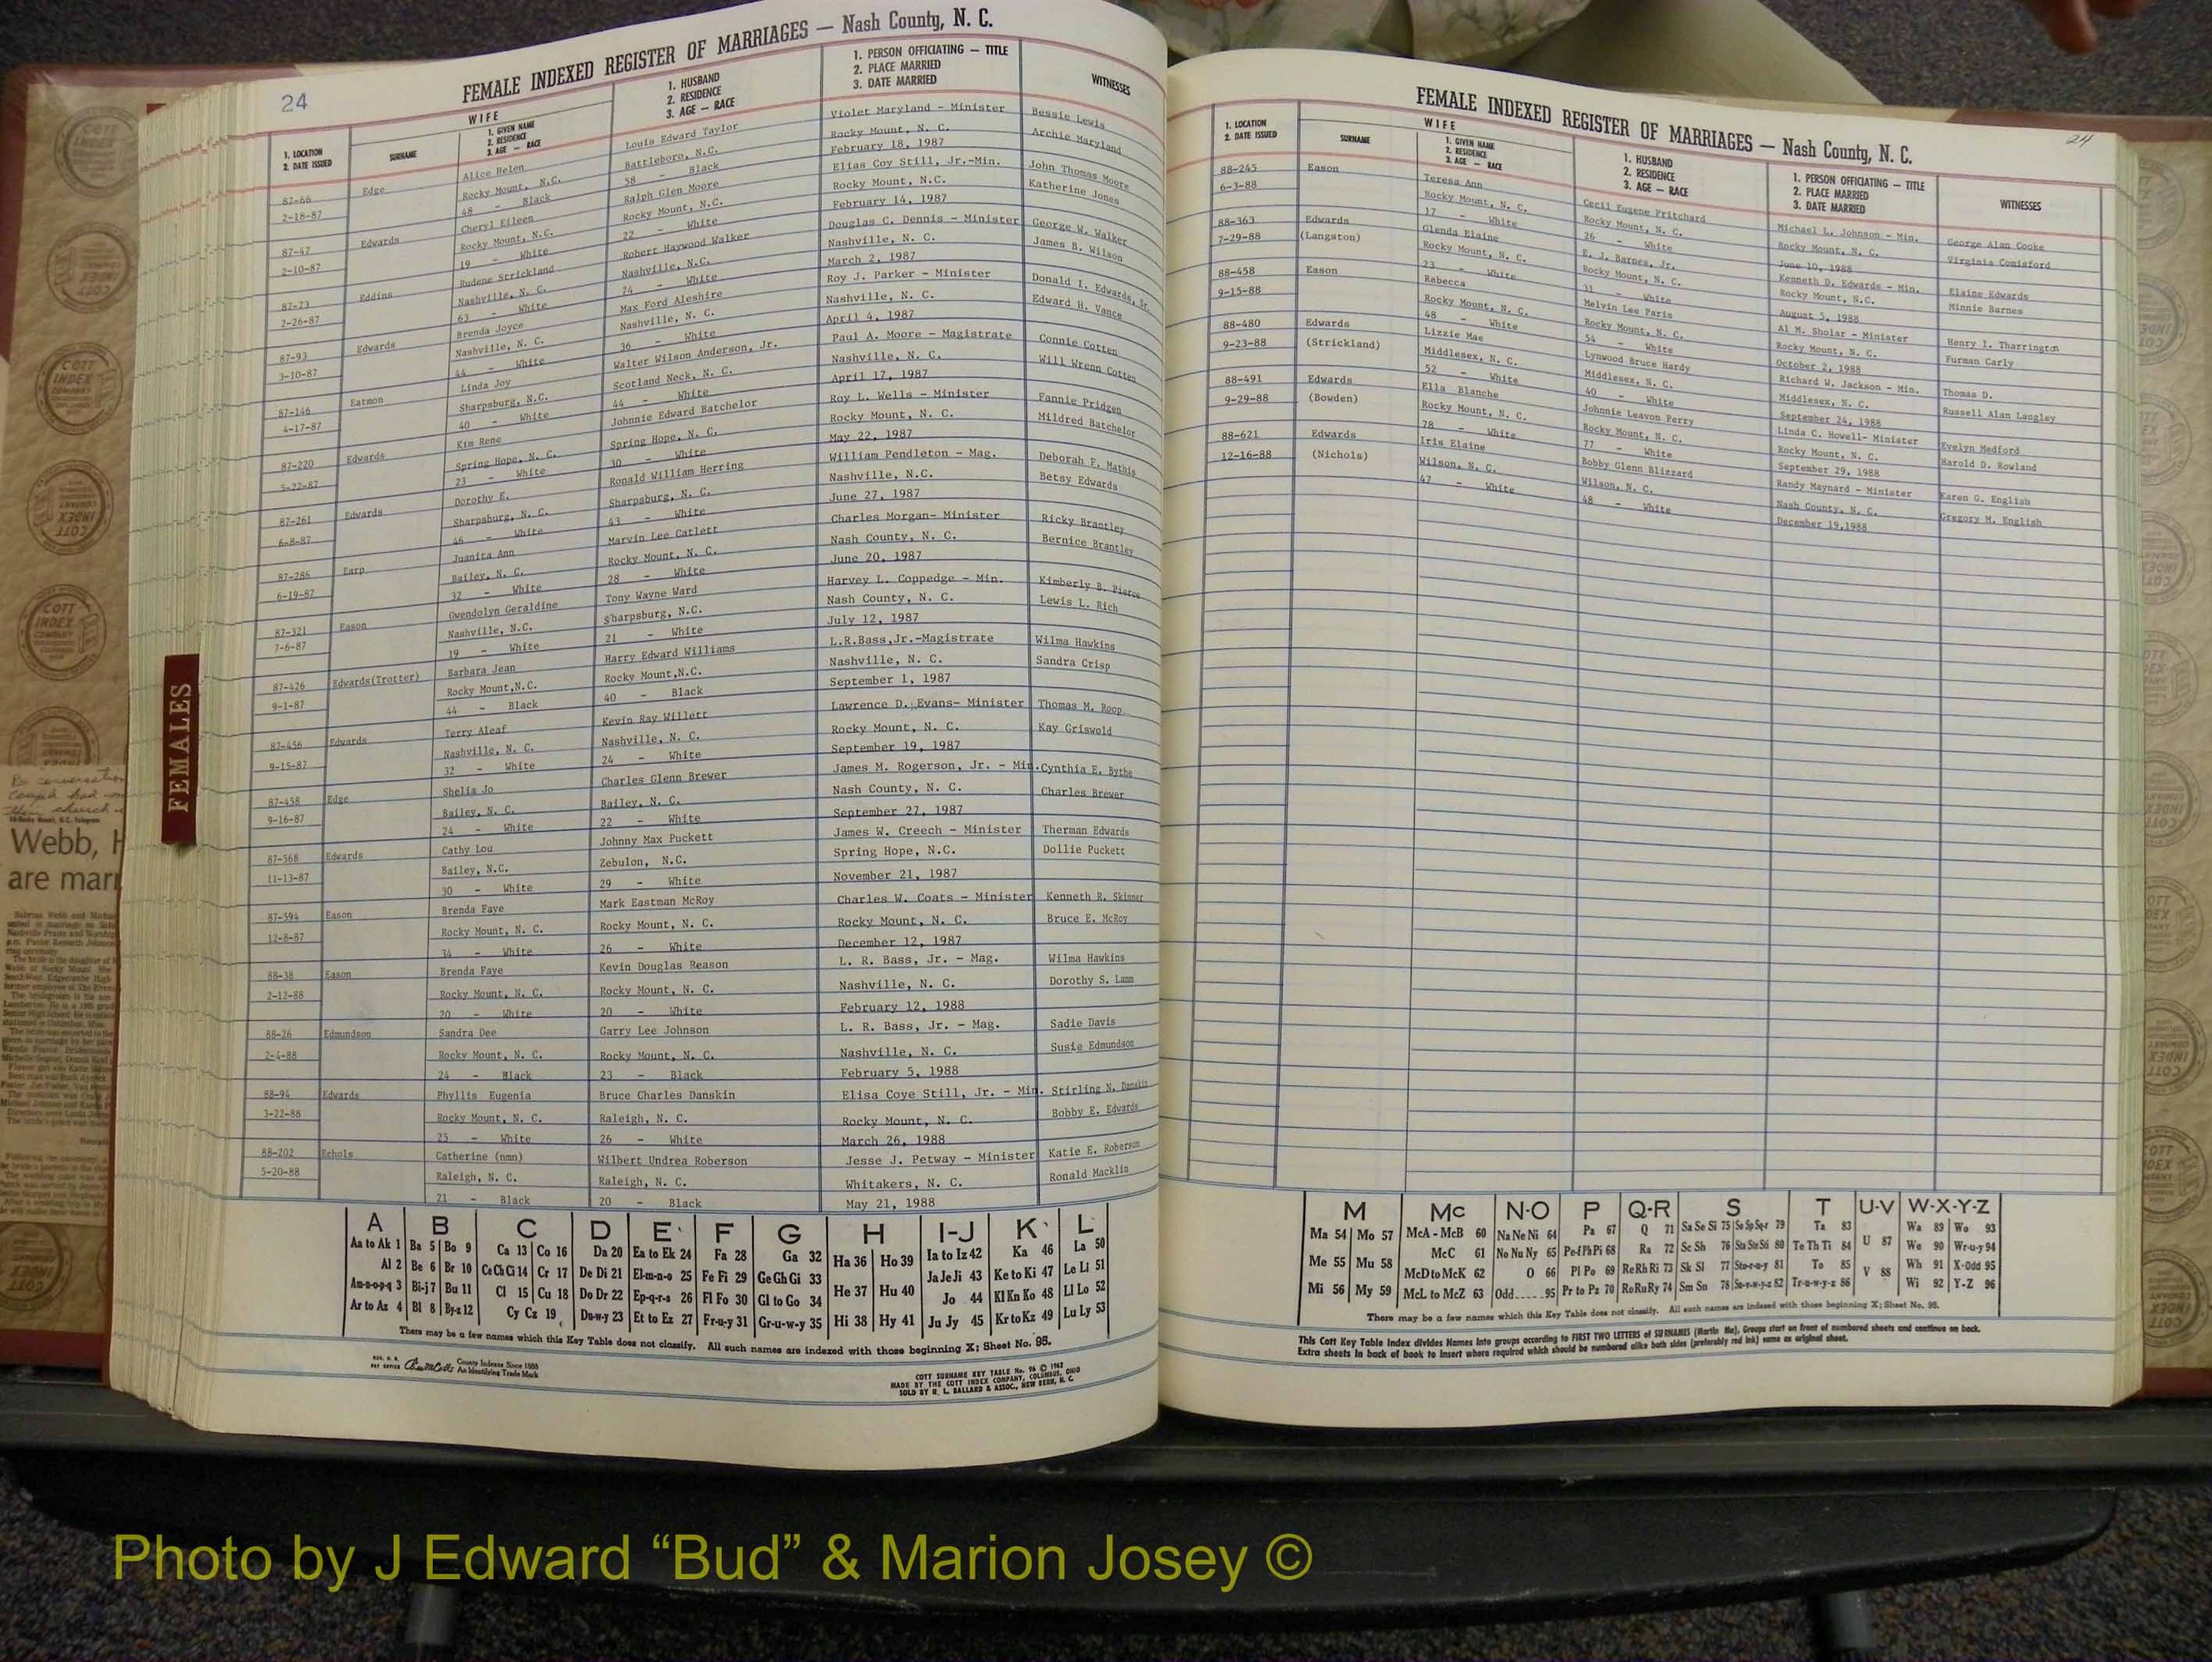 24
FEMALE INDEXED REGISTER OF MARRIAGES — Nash County, N. C.
1. LOCATION
2. DATE ISSUED
WIFE
SURNAME
1. GIVEN NAME
2. RESIDENCE
3. AGE — RACE
1. HUSBAND
2. RESIDENCE
3. AGE — RACE
1. PERSON OFFICIATING — TITLE
2. PLACE MARRIED
3. DATE MARRIED
WITNESSES
87-66 Edge Alice Helen Louis Edward Taylor Violet Maryland - Minister Bessie Lewis
2-18-87 Rocky Mount, N.C. Battleboro, N.C. Rocky Mount, N. C. Archie Maryland
48 - Black 58 - Black February 18, 1987
87-47 Edwards Cheryl Eileen Ralph Glen Moore Elias Coy Still, Jr.-Min. John Thomas Moore
2-10-87 Rocky Mount, N.C. Rocky Mount, N.C. Rocky Mount, N.C. Katherine Jones
19 - White 22 - White February 14, 1987
87-73 Eddins Rudene Strickland Robert Haywood Walker Douglas C. Dennis - Minister George W. Walker
2-26-87 Nashville, N. C. Nashville, N.C. Nashville, N. C. James B. Wilson
63 - White 74 - White March 2, 1987
87-93 Edwards Brenda Joyce Max Ford Aleshire Roy J. Parker - Minister Donald I. Edwards, Sr.
3-10-87 Nashville, N. C. Nashville, N. C. Nashville, N. C. Edward H. Vance
44 - White 36 - White April 4, 1987
87-146 Eatmon Linda Joy Walter Wilson Anderson, Jr. Paul A. Moore - Magistrate Connie Cotten
4-17-87 Sharpsburg, N.C. Scotland Neck, N. C. Nashville, N. C. Will Wrenn Cotten
40 - White 44 - White April 17, 1987
87-220 Edwards Kim Rene Johnnie Edward Batchelor Roy L. Wells - Minister Fannie Pridgen
5-22-87 Spring Hope, N. C. Spring Hope, N. C. Rocky Mount, N. C. Mildred Batchelor
23 - White 30 - White May 22, 1987
87-261 Edwards Dorothy E. Ronald William Herring William Pendleton - Mag. Deborah F. Mathis
6-8-87 Sharpsburg, N. C. Sharpsburg, N. C. Nashville, N.C. Betsy Edwards
46 - White 43 - White June 27, 1987
87-286 Earp Juanita Ann Marvin Lee Catlett Charles Morgan- Minister Ricky Brantley
6-19-87 Bailey, N. C. Rocky Mount, N. C. Nash County, N. C. Bernice Brantley
32 - White 28 - White June 20, 1987
87-321 Eason Gwendolyn Geraldine Tony Wayne Ward Harvey L. Coppedge - Min. Kimberly B. Pierce
7-6-87 Nashville, N.C. Sharpsburg, N.C. Nash County, N. C. Lewis L. Rich
19 - White 21 - White July 12, 1987
87-426 Edwards(Trotter) Barbara Jean Harry Edward Williams L.R.Bass,Jr.-Magistrate Wilma Hawkins
9-1-87 Rocky Mount,N.C. Rocky Mount,N.C. Nashville, N. C. Sandra Crisp
44 - Black 40 - Black September 1, 1987
87-456 Edwards Terry Aleaf Kevin Ray Willett Lawrence D. Evans- Minister Thomas M. Roop
9-15-87 Nashville, N. C. Nashville, N. C. Rocky Mount, N. C. Kay Griswold
32 - White 24 - White September 19, 1987
87-458 Edge Shelia Jo Charles Glenn Brewer James M. Rogerson, Jr. - Min. Cynthia E. Bythe
9-16-87 Bailey, N. C. Bailey, N. C. Nash County, N. C. Charles Brewer
24 - White 22 - White September 27, 1987
87-568 Edwards Cathy Lou Johnny Max Puckett James W. Creech - Minister Therman Edwards
11-13-87 Bailey, N.C. Zebulon, N.C. Spring Hope, N.C. Dollie Puckett
30 - White 29 - White November 21, 1987
87-594 Eason Brenda Faye Mark Eastman McRoy Charles W. Coats - Minister Kenneth R. Skinner
12-8-87 Rocky Mount, N. C. Rocky Mount, N. C. Rocky Mount, N. C. Bruce E. McRoy
34 - White 26 - White December 12, 1987
88-38 Eason Brenda Faye Kevin Douglas Reason L. R. Bass, Jr. - Mag. Wilma Hawkins
2-12-88 Rocky Mount, N. C. Rocky Mount, N. C. Nashville, N. C. Dorothy S. Lamm
20 - White 20 - White February 12, 1988
88-26 Edmundson Sandra Dee Garry Lee Johnson L. R. Bass, Jr. - Mag. Sadie Davis
2-4-88 Rocky Mount, N. C. Rocky Mount, N. C. Nashville, N. C. Susie Edmundson
24 - Black 23 - Black February 5, 1988
88-94 Edwards Phyllis Eugenia Bruce Charles Danskin Elisa Coye Still, Jr. - Min. Stirling N. Danskin
3-22-88 Rocky Mount, N. C. Raleigh, N. C. Rocky Mount, N. C. Bobby E. Edwards
25 - White 26 - White March 26, 1988
88-202 Echols Catherine (nmn) Wilbert Undrea Roberson Jesse J. Petway - Minister Katie E. Roberson
5-20-88 Raleigh, N. C. Raleigh, N. C. Whitakers, N. C. Ronald Macklin
21 - Black 20 - Black May 21, 1988
A B C D E F G H I-J K L
Aa to Ak 1 Ba 5 Bo 9 Ca 13 Co 16 Da 20 Ea to Ek 24 Fa 28 Ga 32 Ha 36 Ho 39 Ia to Iz 42 Ka 46 La 50
Al 2 Be 6 Br 10 Ce Ch Ci 14 Cr 17 De Di 21 El-m-n-o 25 Fe Fi 29 Ge Gh Gi 33 He 37 Hu 40 Ja Je Ji 43 Ke to Ki 47 Le Li 51
Am-n-o-p-q 3 Bi-j 7 Bu 11 Cl 15 Cu 18 Do Dr 22 Ep-q-r-s 26 Fl Fo 30 Gl to Go 34 Jo 44 Kl Kn Ko 48 Ll Lo 52
Ar to Az 4 Bl 8 By-z 12 Cy Cz 19 Du-w-y 23 Et to Ez 27 Fr-u-y 31 Gr-u-w-y 35 Hi 38 Hy 41 Ju Jy 45 Kr to Kz 49 Lu Ly 53
There may be a few names which this Key Table does not classify. All such names are indexed with those beginning X; Sheet No. 95.
County Indexes Since 1888
An Identifying Trade Mark
COTT SURNAME KEY TABLE No. 96 © 1962
MADE BY THE COTT INDEX COMPANY, COLUMBUS, OHIO
SOLD BY R. L. BALLARD & ASSOC., NEW BERN, N. C.
FEMALE INDEXED REGISTER OF MARRIAGES — Nash County, N. C.
24
1. LOCATION
2. DATE ISSUED
WIFE
SURNAME
1. GIVEN NAME
2. RESIDENCE
3. AGE — RACE
1. HUSBAND
2. RESIDENCE
3. AGE — RACE
1. PERSON OFFICIATING — TITLE
2. PLACE MARRIED
3. DATE MARRIED
WITNESSES
88-245 Eason Teresa Ann Cecil Eugene Pritchard Michael L. Johnson - Min. George Alan Cooke
6-3-88 Rocky Mount, N. C. Rocky Mount, N. C. Rocky Mount, N. C. Virginia Comisford
17 - White 26 - White June 10, 1988
88-363 Edwards Glenda Elaine E. J. Barnes, Jr. Kenneth D. Edwards - Min. Elaine Edwards
7-29-88 (Langston) Rocky Mount, N. C. Rocky Mount, N. C. Rocky Mount, N.C. Minnie Barnes
23 - White 31 - White August 5, 1988
88-458 Eason Rebecca Melvin Lee Paris Al M. Sholar - Minister Henry I. Tharrington
9-15-88 Rocky Mount, N. C. Rocky Mount, N. C. Rocky Mount, N. C. Furman Carly
48 - White 54 - White October 2, 1988
88-480 Edwards Lizzie Mae Lynwood Bruce Hardy Richard W. Jackson - Min. Thomas D.
9-23-88 (Strickland) Middlesex, N. C. Middlesex, N. C. Middlesex, N. C. Russell Alan Langley
52 - White 40 - White September 24, 1988
88-491 Edwards Ella Blanche Johnnie Leavon Perry Linda C. Howell- Minister Evelyn Medford
9-29-88 (Bowden) Rocky Mount, N. C. Rocky Mount, N. C. Rocky Mount, N. C. Harold D. Rowland
78 - White 77 - White September 29, 1988
88-621 Edwards Iris Elaine Bobby Glenn Blizzard Randy Maynard - Minister Karen G. English
12-16-88 (Nichols) Wilson, N. C. Wilson, N. C. Nash County, N. C. Gregory M. English
47 - White 48 - White December 19,1988
M Mc N-O P Q-R S T U-V W-X-Y-Z
Ma 54 Mo 57 McA - McB 60 Na Ne Ni 64 Pa 67 Q 71 Sa Se Si 75 So Sp Sq-r 79 Ta 83 U 87 Wa 89 Wo 93
Me 55 Mu 58 McC 61 No Nu Ny 65 Pe-f Ph Pi 68 Ra 72 Sc Sh 76 Sta Ste Sti 80 Te Th Ti 84 We 90 Wr-u-y 94
McD to McK 62 O 66 Pl Po 69 Re Rh Ri 73 Sk Sl 77 Sto-r-u-y 81 To 85 V 88 Wh 91 X-Odd 95
Mi 56 My 59 McL to McZ 63 Odd 95 Pr to Pz 70 Ro Ru Ry 74 Sm Sn 78 Su-v-w-y-z 82 Tr-u-w-y-z 86 Wi 92 Y-Z 96
There may be a few names which this Key Table does not classify. All such names are indexed with those beginning X; Sheet No. 95.
This Cott Key Table Index divides Names into groups according to FIRST TWO LETTERS of SURNAMES (Martin Ma). Groups start on front of numbered sheets and continue on back.
Extra sheets in back of book to insert where required which should be numbered alike both sides (preferably red ink) same as original sheet.
FEMALES
Webb, H
are marr
COTT
INDEX
COMPANY
Photo by J Edward “Bud” & Marion Josey ©